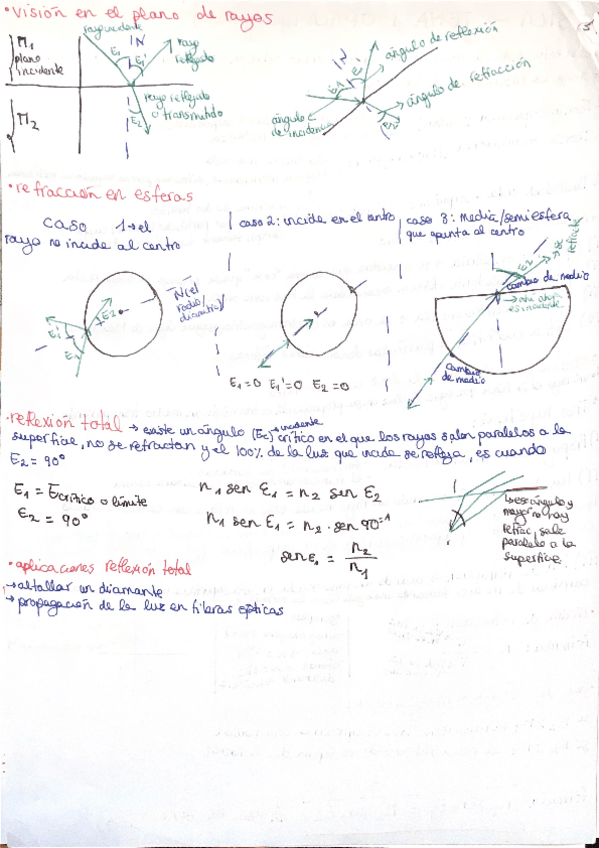 • visión en el plano de rayos
5
rayo incidente
N
M1
plano
incidente
E1 E1'
rayo
reflejado
M2
rayo refractado
o transmitido
E2
N
ángulo de reflexión
E1 E1'
ángulo de refracción
ángulo
de incidencia
E2
• refracción en esferas
caso 1 → el
rayo no incide al centro
caso 2: incide en el centro
caso 3: media/semiesfera
que apunta al centro
N (el
radio/
diámetro)
E1'
E1
E2
E1=0 E1'=0 E2=0
E2
se
refracta
cambio de medio
es incidente
cambio
de medio
• reflexión total → existe un ángulo (Ec) → incidente crítico en el que los rayos salen paralelos a la
superficie, no se refractan y el 100% de la luz que incide se refleja, es cuando
E2 = 90°
E1 = Ecrítico o límite
E2 = 90°
n1 sen E1 = n2 sen E2
n1 sen E1 = n2 · sen 90° =1
sen E1 = n2
n1
ese ángulo y
mayor no ray
refrac, sale
paralelo a la
superficie
• aplicaciones reflexión total
→ al tallar un diamante
→ propagación de la luz en fibras ópticas